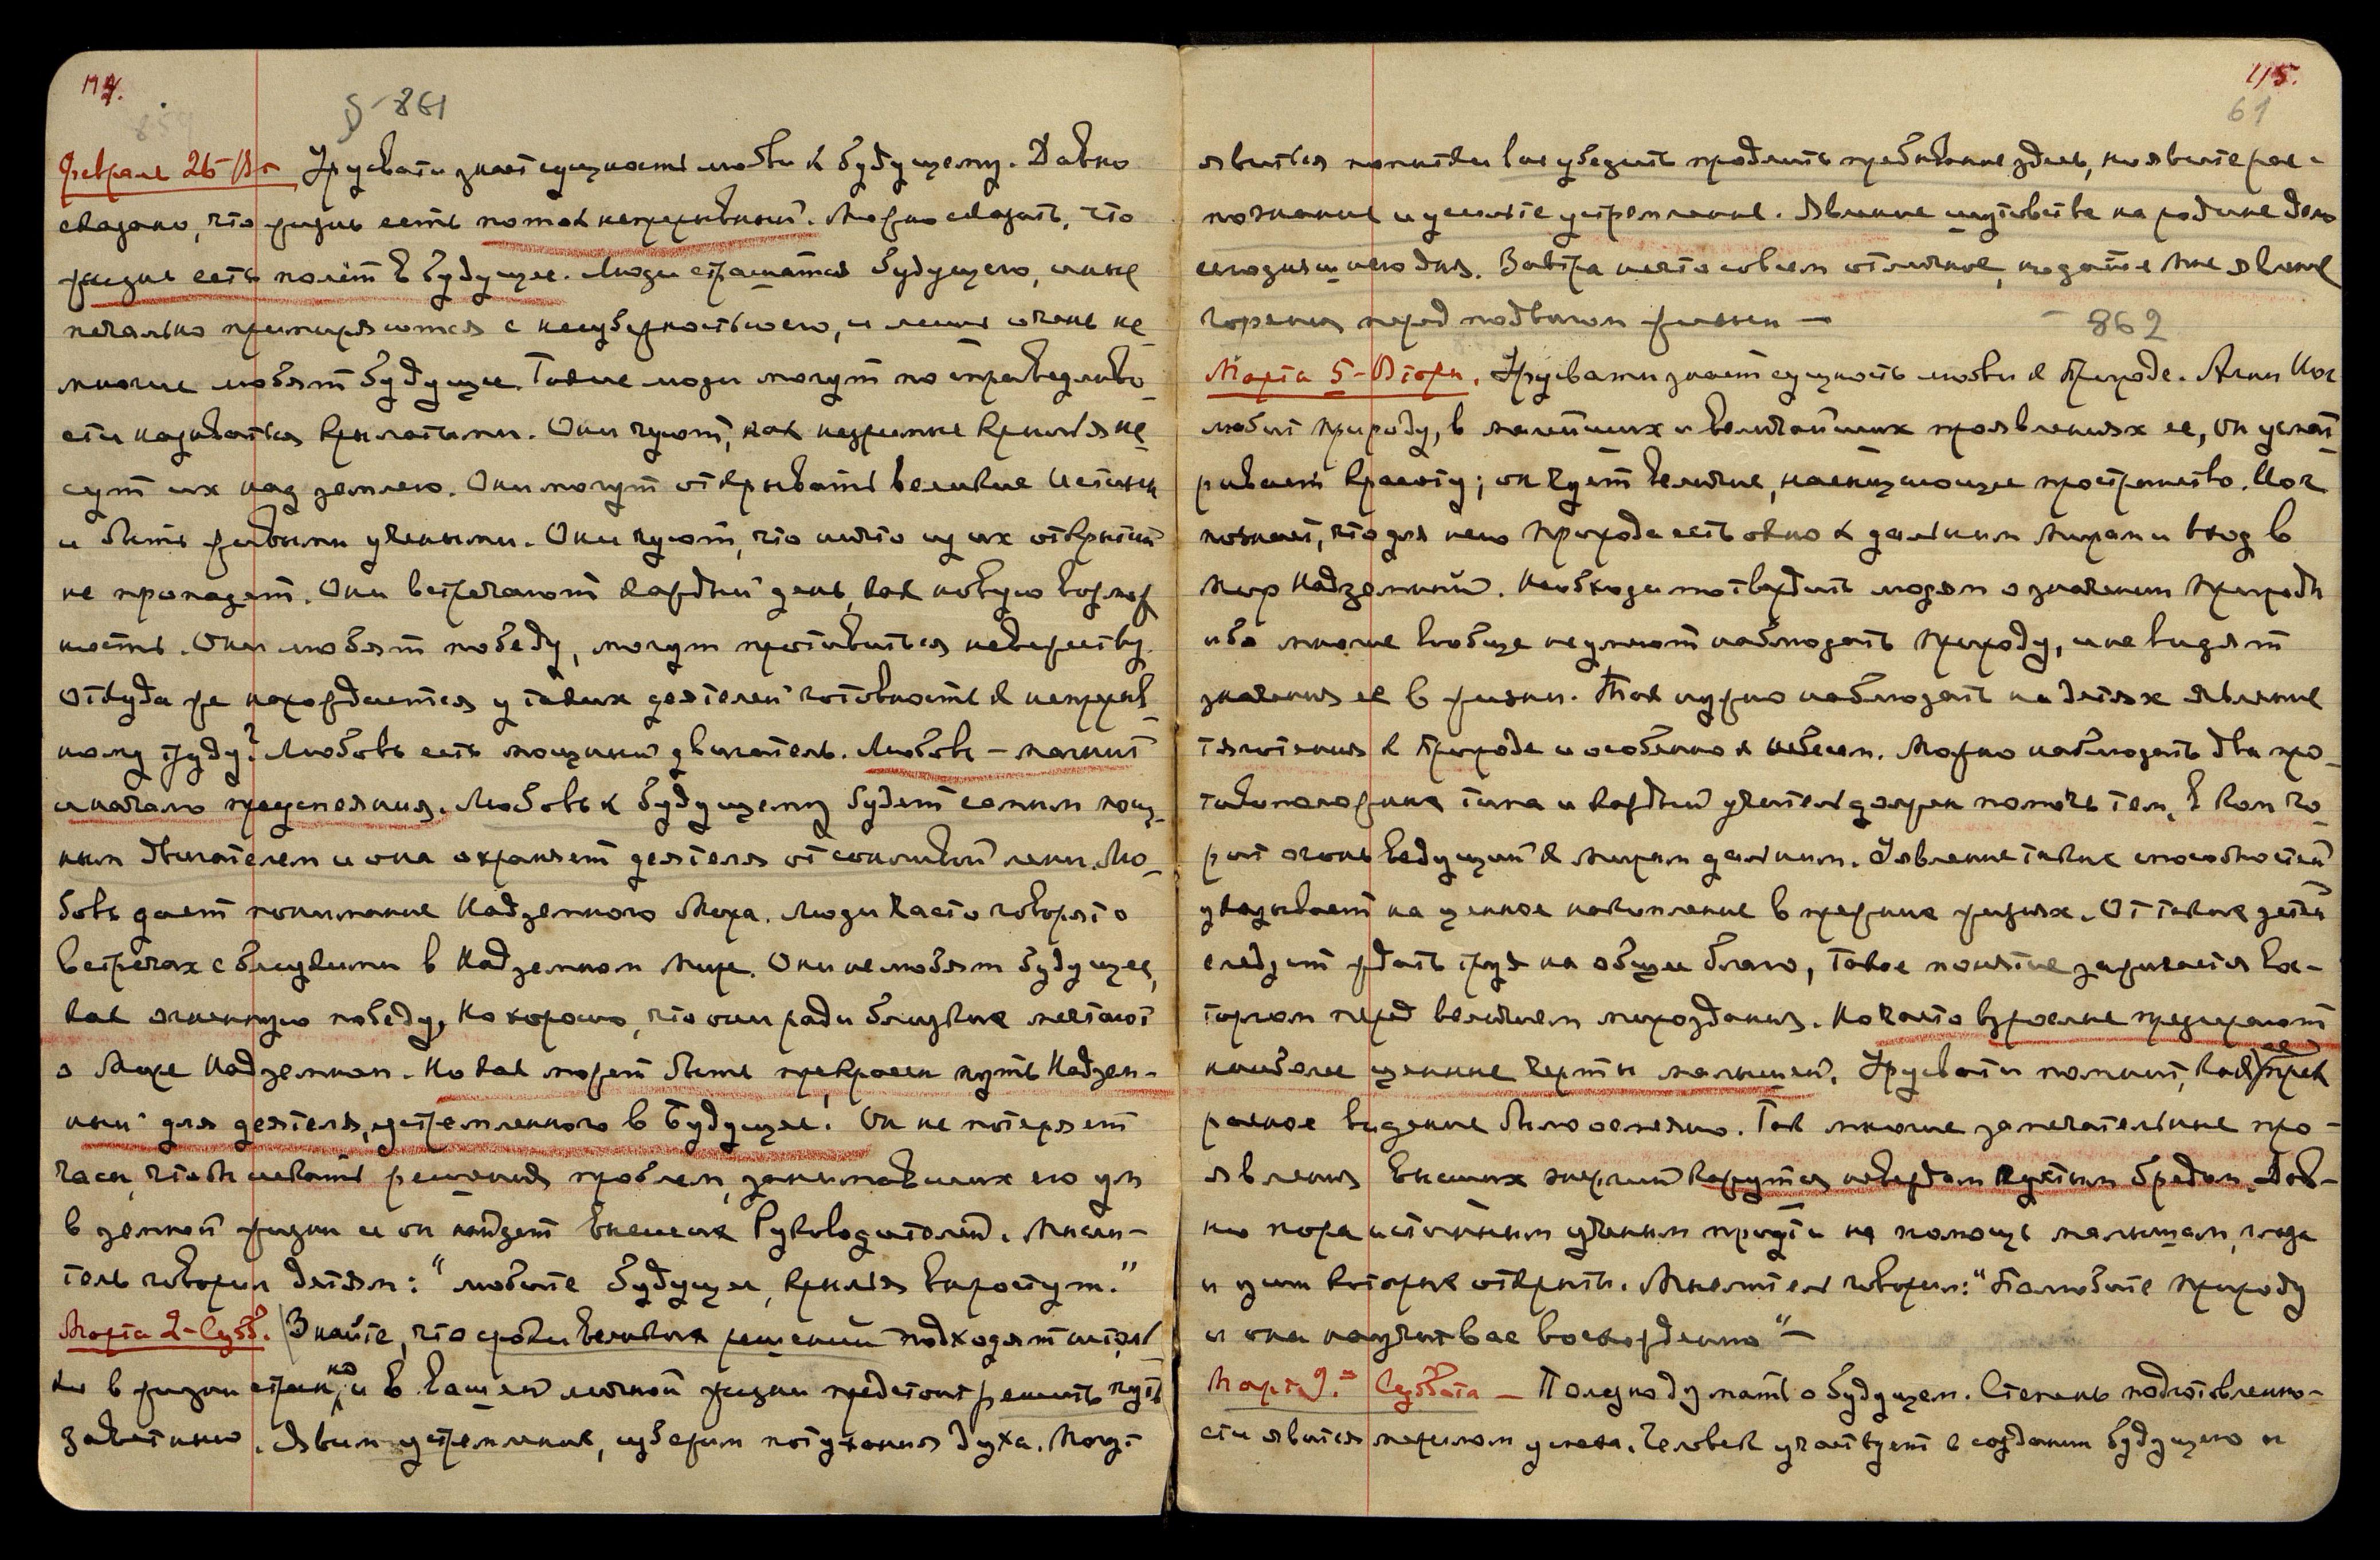 114.
§ 861
Февраля 26-Вт Урусвати знает сущность любви к будущему. Давно
сказано, что жизнь есть поток непрерывный. Можно сказать, что
жизнь есть полёт в будущее. Люди страшатся будущего, иные
печально примиряются с неизбежностью его, и лишь очень не-
многие любят будущее. Такие люди могут по справедливо-
сти называться крылатыми. Они чуют, как незримые крылья не-
сут их над землею. Они могут открывать великие Истины
и быть живыми учеными. Они чуют, что ничто из их открытий
не пропадет. Они встречают каждый день, как новую возмож-
ность. Они любят победу, могут противиться невежеству.
Откуда же нахождается у таких деятелей готовность к непрерыв-
ному труду? Любовь есть мощный двигатель. Любовь – магнит
и начало преуспеяния. Любовь к будущему будет самым мощ-
ным двигателем и она охраняет деятеля от сонливой лени. Лю-
бовь дает понимание Надземного Мира. Люди часто говорят о
встречах с близкими в Надземном Мире. Они не любят будущее,
как огненную победу, но хорошо, что они ради близких мечтают
о Мире Надземном. Но как может быть прекрасен путь Надзем-
ный для деятеля, устремленного в Будущее. Он не потеряет
часы, чтобы искать решения проблем, занимавших его ум
в земной жизни и он найдет высших Руководителей. Мысли-
тель говорил детям: "любите будущее, крылья вырастут."
Марта 2-Субб. Знайте, что сроки великих решений подходят шторм
но в жизни стран, и в вашей личной жизни предстоит решить путь
заветный. Явим устремление, изберем потухания духа. Могут
115.
61
явиться попытки вас убедить продлить пребывание здесь, но явите рас-
познание и усильте устремление. Явление шутовства на родине дело
сегодняшнего дня. Завтра нечто совсем отличное, но дайте Мне явление
горения перед подвигом жизни —
862
Марта 5-Вторн. Урусвати знает сущность любви к Природе. Агни Йог
любит природу, в малейших и величайших проявлениях ее, он усмат-
ривает красоту; он чует величие, насыщающее пространство. Йог
познает, что для него Природа есть окно к дальним мирам и вход в
Мир Надземный. Необходимо твердить людям о значении Природы
ибо многие вообще не умеют наблюдать Природу, и не видят
значения ее в жизни. Так нужно наблюдать на детях явление
тяготения к Природе и особенно к небесам. Можно наблюдать два про-
тивоположных типа и каждый учитель должен помочь тем, в ком го-
рит огонь ведущий к мирам дальним. Явление таких способностей
указывает на ценное накопление в прежних жизнях. От таких детей
следует ждать труд на общее благо, такое понятие зарождается вос-
торгом перед величием мироздания. Но часто взрослые презирают
наиболее ценные черты малышей. Урусвати помнит, как ее прек-
расное видение было осмеяно. Так многие замечательные про-
явления высших энергий кажутся невеждам пустым бредом. Дав-
но пора истинным ученым прийти на помощь малышам, глаза
и уши которых открыты. Мыслитель говорил: "Полюбите Природу
и она научит вас восхождению" —
Марта 9.= Суббота — Полезно думать о будущем. Степень подготовленно-
сти явится мерилом успеха. Человек участвует в создании будущего и